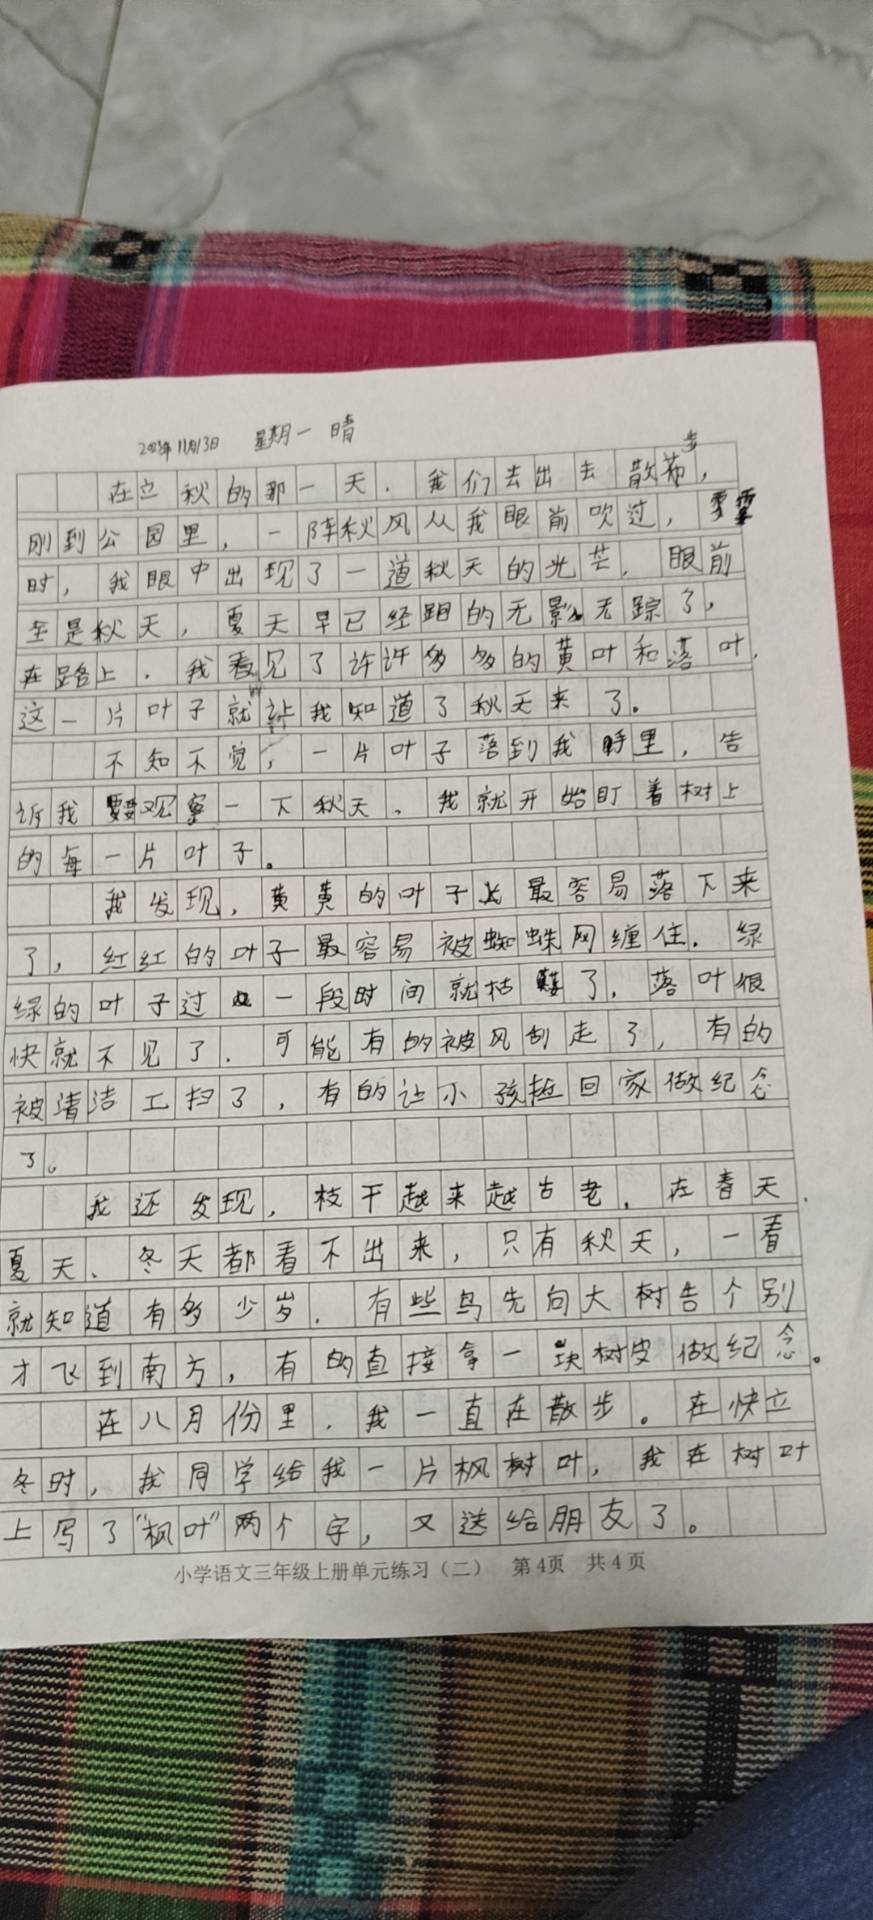 2023年11月13日 星期一 晴
步
在立秋的那一天，我们去出去散布，
刚到公园里，一阵秋风从我眼前吹过，霎
时，我眼中出现了一道秋天的光芒，眼前
全是秋天，夏天早已经跑的无影无踪了，
在路上，我看见了许许多多的黄叶和落叶，
这一片叶子就让我知道了秋天来了。
不知不觉，一片叶子落到我手里，告
诉我要观察一下秋天、我就开始盯着树上
的每一片叶子。
我发现，黄黄的叶子最容易落下来
了，红红的叶子最容易被蜘蛛网缠住，绿
绿的叶子过一段时间就枯萎了，落叶很
快就不见了，可能有的被风刮走了，有的
被清洁工扫了，有的让小孩回家做纪念
了。
我还发现，枝干越来越古老，在春天、
夏天、冬天都看不出来，只有秋天，一看
就知道有多少岁，有些鸟先向大树告个别
才飞到南方，有的直接拿一块树皮做纪念。
在八月份里，我一直在散步。在快立
冬时，我同学给我一片枫树叶，我在树叶
上写了“枫叶”两个字，又送给朋友了。
小学语文三年级上册单元练习（二） 第4页 共4页